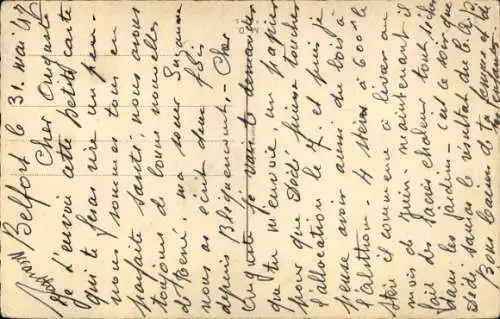 Belfort le 31 mai 42
Cher Auguste
je t'envoi cette petite carte
qui te feras rire un peu.
nous sommes tous en
parfaite santé, nous avons
toujours de bonnes nouvelles
d'René, ma sœur Suzanne
nous as écrit deux fois
depuis - Cher
Auguste je vais te demander
que tu m'envoie, un papier
pour que Dédé puisse toucher
l'allocation le 7. et puis je
pense avoir aussi du bois à
l'alsthom. 4 stères à 600 le
stère il commence à livrer au
mois de juin. maintenant il
fait des sacrés chaleur tout sèche
dans les jardins - c'est ce soir que
Dédé sauras le résultat du
Bons baisers de ta femme